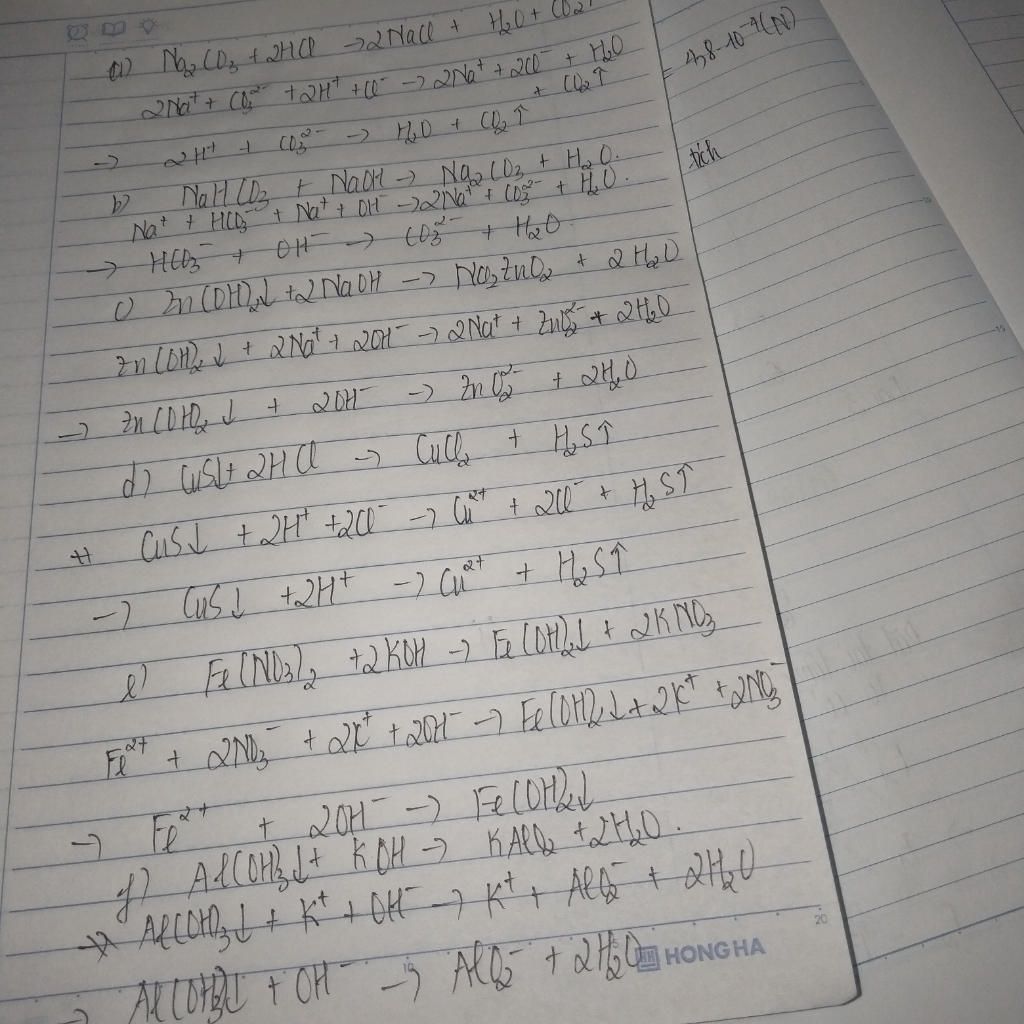 a) Na₂CO₃ + 2HCl → 2NaCl + H₂O + CO₂↑
2Na⁺ + CO₃²⁻ + 2H⁺ + Cl⁻ → 2Na⁺ + 2Cl⁻ + H₂O
+ CO₂↑
→ 2H⁺ + CO₃²⁻ → H₂O + CO₂↑
b) NaHCO₃ + NaOH → Na₂CO₃ + H₂O.
Na⁺ + HCO₃⁻ + Na⁺ + OH⁻ → 2Na⁺ + CO₃²⁻ + H₂O.
→ HCO₃⁻ + OH⁻ → CO₃²⁻ + H₂O
c) Zn(OH)₂↓ + 2NaOH → Na₂ZnO₂ + 2H₂O
Zn(OH)₂↓ + 2Na⁺ + 2OH⁻ → 2Na⁺ + ZnO₂²⁻ + 2H₂O
→ Zn(OH)₂↓ + 2OH⁻ → ZnO₂²⁻ + 2H₂O
d) CuS↓ + 2HCl → CuCl₂ + H₂S↑
CuS↓ + 2H⁺ + 2Cl⁻ → Cu²⁺ + 2Cl⁻ + H₂S↑
→ CuS↓ + 2H⁺ → Cu²⁺ + H₂S↑
e) Fe(NO₃)₂ + 2KOH → Fe(OH)₂↓ + 2KNO₃
Fe²⁺ + 2NO₃⁻ + 2K⁺ + 2OH⁻ → Fe(OH)₂↓ + 2K⁺ + 2NO₃⁻
→ Fe²⁺ + 2OH⁻ → Fe(OH)₂↓
f) Al(OH)₃↓ + KOH → KAlO₂ + 2H₂O.
Al(OH)₃↓ + K⁺ + OH⁻ → K⁺ + AlO₂⁻ + 2H₂O
→ Al(OH)₃↓ + OH⁻ → AlO₂⁻ + 2H₂O
HONG HA
20
= 4,8 · 10⁻⁴ (N)
tích